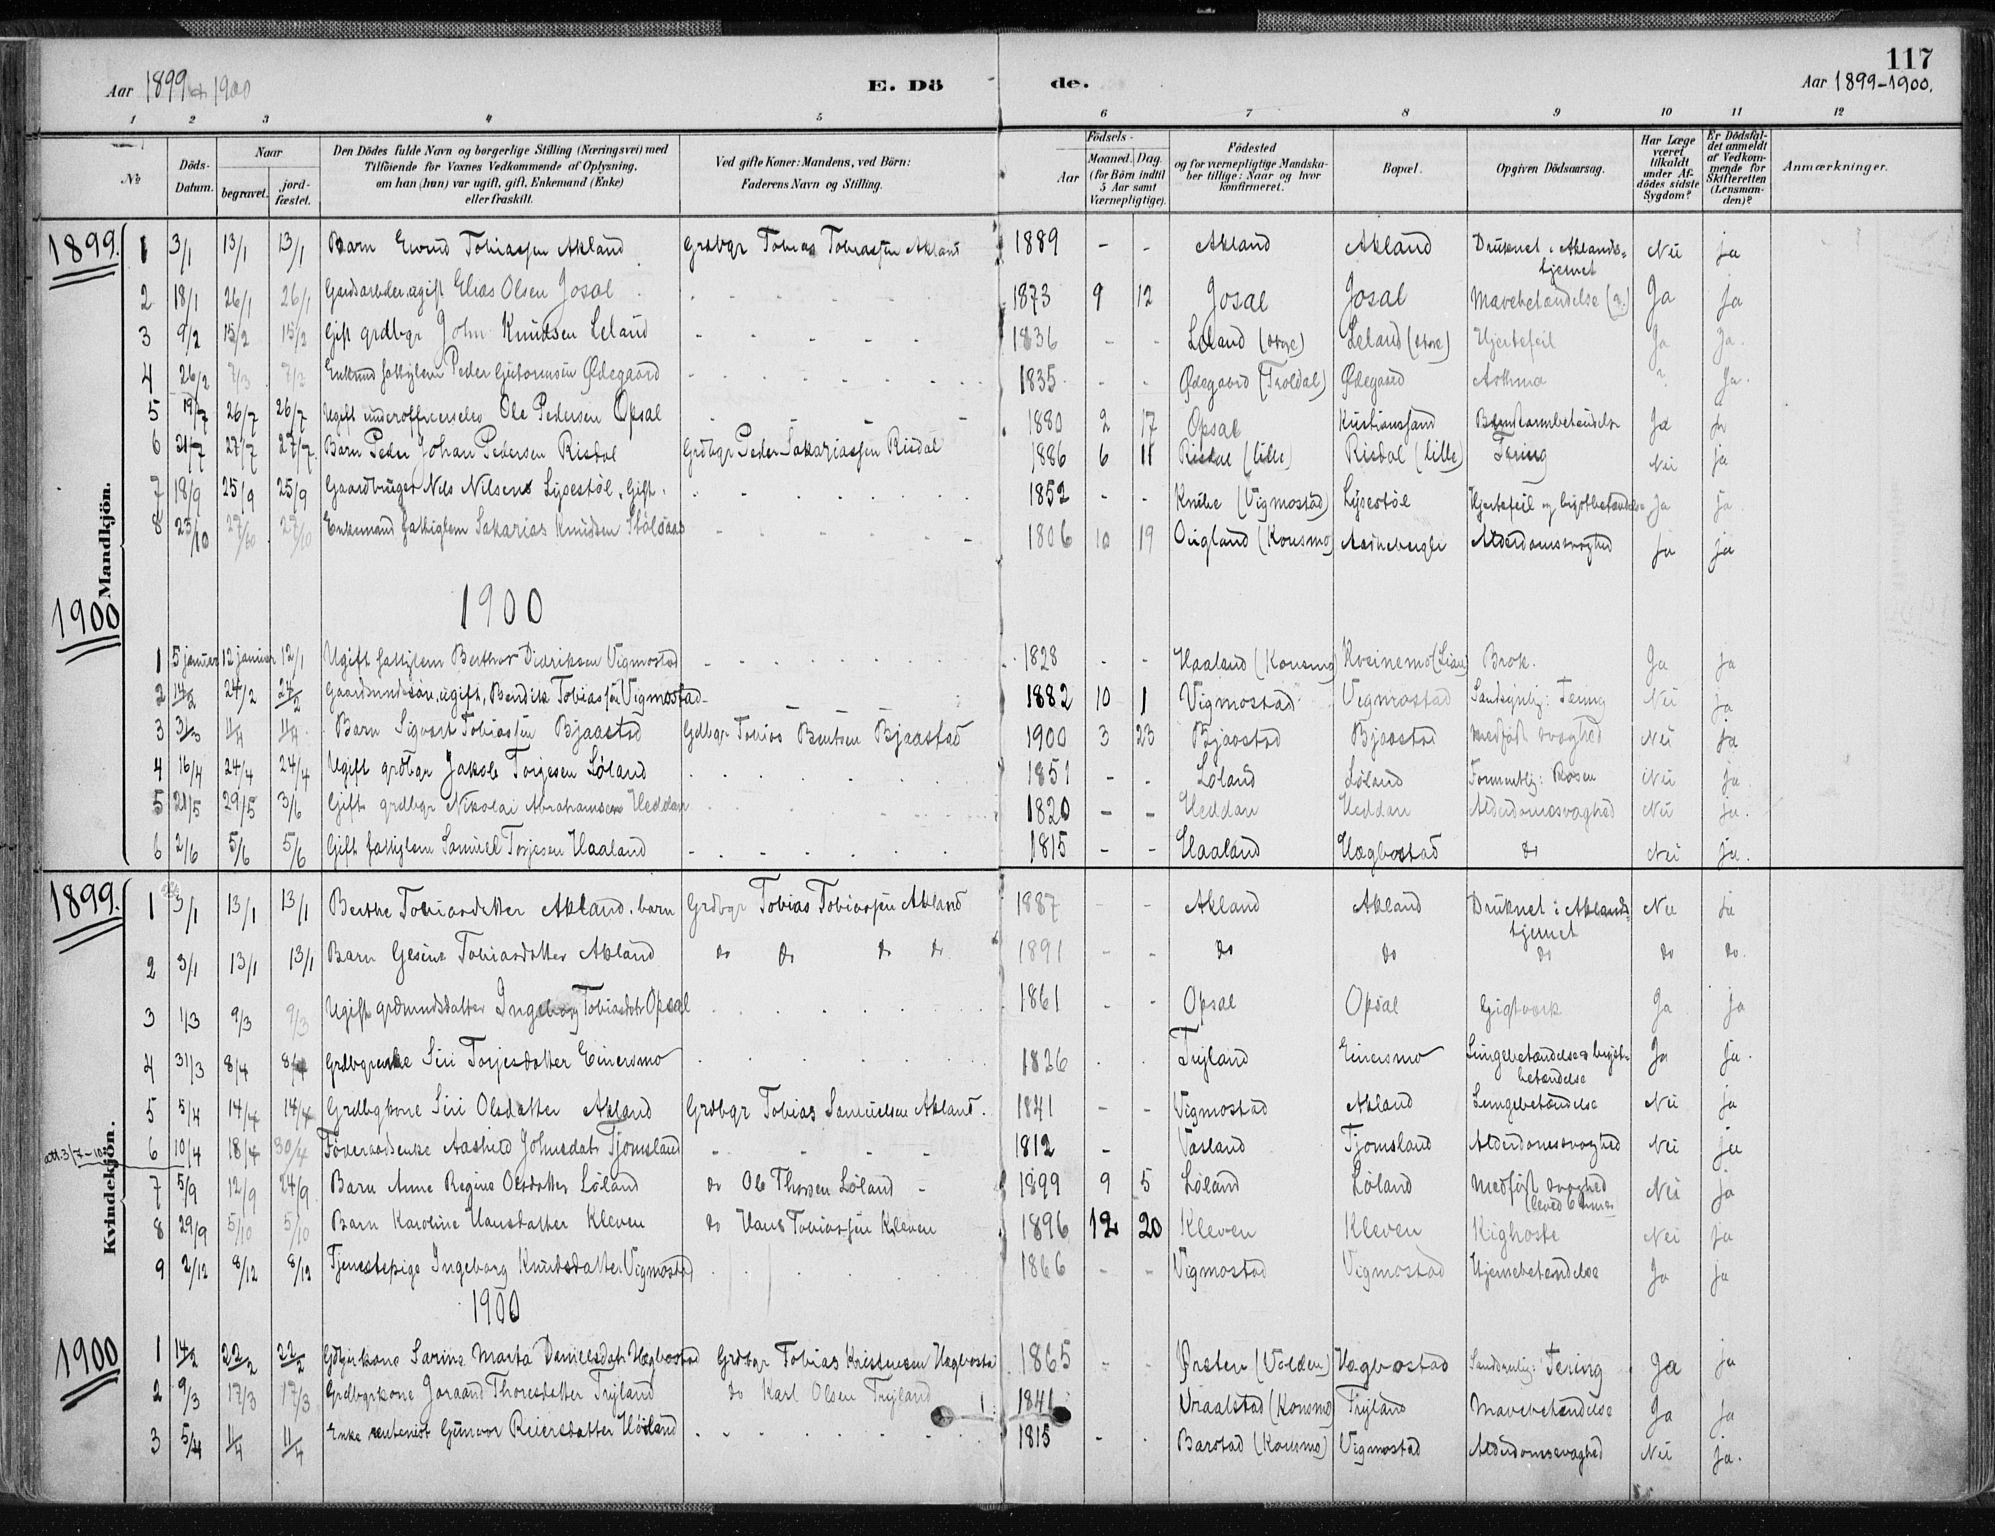 117
Aar 1899 og 1900 E. Dö de. Aar 1899-1900.
1 2 3 4 5 6 7 8 9 10 11 12
№ Döds-Datum. Naar begravet. jord-fæstet. Den Dödes fulde Navn og borgerlige Stilling (Næringsvei) med Tilföiende for Voxnes Vedkommende af Oplysning, om han (hun) var ugift, gift, Enkemand (Enke) eller fraskilt. Ved gifte Koner: Mandens, ved Börn: Faderens Navn og Stilling. Födsels- Aar Maaned. Dag. (for Börn indtil 5 Aar samt Værnepligtige). Födested og for værnepligtige Mandskaber tillige: Naar og hvor konfirmeret. Bopæl. Opgiven Dödsaarsag. Har Læge været tilkaldt under Afdödes sidste Sygdom? Er Dödsfaldet anmeldt af Vedkommende for Skifteretten (Lensmanden)? Anmærkninger.
Mandkjön.
1899.
1 3/1 13/1 13/1 Barn Eivind Tobiassen Akland Grdbgr Tobias Tobiassen Akland 1889 - - Akland Akland Druknet i Aklandstjernet Nei ja
2 18/1 26/1 26/1 Gaardsarbeider ugift Elias Olsen Josal 1873 9 12 Josal Josal Mavebetændelse (?) Ja Ja
3 9/2 15/2 15/2 Gift grdbgr John Knudsen Leland 1836 - - Leland (øvre) Leland (øvre) Hjertefeil Ja Ja.
4 26/2 7/3 7/3 Enkmd fattiglem Peder Guttormsen Ødegaard 1835 - - Ødegaard (Troldal) Ødegaard Asthma ? Ja.
5 19/7 26/7 26/7 Ugift underofficerselev Ole Pedersen Opsal 1880 2 17 Opsal Kristianssand Blindtarmbetændelse Ja Ja
6 21/7 27/7 27/7. Barn Peder Johan Pedersen Risdal Grdbgr Peder Sakariassen Risdal 1886 6 11 Risdal (lille) Risdal (lille) Tæring Nei ja
7 18/9 25/9 25/9 Gaardbruger Nils Nilsen Lysestøl, Gift. 1852 - - Knibe (Vigmostad) Lysestøl Hjertefeil og brystbetændelse Ja ja
8 23/10 27/10 27/10 Enkemand fattiglem Sakarias Knudsen Stølsaas 1806 10 19 Øigland (Konsmo) Alderdomssvaghed ja ja
1900
1900
1 5 januar 12 januar 12/1 Ugift fattiglem Berthor Didriksen Vigmostad 1828 - - Haaland (Konsmo) Kveinemo (Lian) Brok. Ja ja
2 14/2 24/2 24/2 Gaardmandssøn, ugift, Bendik Tobiassen Vigmostad 1882 10 1 Vigmostad Vigmostad Sandsynlig: Tæring Nei ja
3 31/3 11/4 11/4 Barn Sigvart Tobiassen Bjaastad Gdbgr Tobias Bentsen Bjaastad 1900 3 23 Bjaastad Bjaastad Medfødt svaghed Nei Ja
4 16/4 24/4 24/4 Ugift grdbgr Jakob Torjesen Løland 1851 - - Løland Løland Formentlig: Rosen Nei ja.
5 21/5 29/5 3/6 Gift grdbgr Nikolai Abrahamsen Heddan 1820 - - Heddan Heddan Alderdomssvaghed Nei ja.
6 2/6 5/6 5/6 Gift fattiglem Samuel Torjesen Haaland 1815 - - Haaland Hægbostad do Nei ja.
Kvindekjön.
1899.
1 3/1 13/1 13/1 Berthe Tobiasdatter Akland, barn Grdbgr Tobias Tobiassen Akland 1887 - - Akland Akland Druknet i Aklandstjernet Nei ja
2 3/1 13/1 13/1 Barn Gesine Tobiasdatter Akland do do do do 1891 - - do do do do do.
3 1/3 9/3 9/3 Ugift grdmandsdatter Ingeborg Tobiasdatr Opsal 1861 - - Opsal Opsal Gigtværk Ja ja
4 31/3 8/4 8/4 Grdbgrenke Siri Torjesdatter Einersmo 1826 - - Tryland Einersmo Lungebetændelse & brystbetændelse Ja Ja.
5 5/4 14/4 14/4 Grdbgkone Siri Olsdatter Akland Grdbgr Tobias Samuelsen Akland. 1841 - - Vigmostad Akland Lungebetændelse Nei ja
6 10/4 18/4 30/4 Føderaadsenke Aashild Johnsdatr Tjomsland 1812 - Vasland Tjomsland Alderdomssvaghed Nei ja
7 5/9 12/9 24/9 Barn Anne Regine Olsdatter Løland do Ole Thorsen Løland - 1899 9 5 Løland Løland Medfødt svaghed Nei ja
8 29/9 5/10 5/10 Barn Karoline Hansdatter Kleven do Hans Tobiassen Kleven 1896 12 20 Kleven Kleven Kighoste Nei ja
9 2/12 8/12 8/12 Tjenestepige Ingeborg Knudsdatter Vigmostad 1866 - - Vigmostad Vigmostad Hjernebetændelse Ja ja
1900
1900
1 14/2 22/2 22/2 Sarine Marta Danielsdatr Hægbostad Grdbgr Tobias Kristensen Hægbostad 1865 - - Ørsten (Volden) Hægbostad Sandsynlig: Tæring Ja ja
2 9/3 17/3 17/3 Grdbgrkone Joraand Thoresdatter Tryland do Karl Olsen Tryland 1841 Vraalstad (Konsmo) Tryland Mavebetændelse Ja ja
3 5/4 11/4 11/4 Enke Gunvor Reiersdatter Høiland 1815 - - Barstad (Konsmo) Vigmostad Alderdomssvaghed Nei ja.